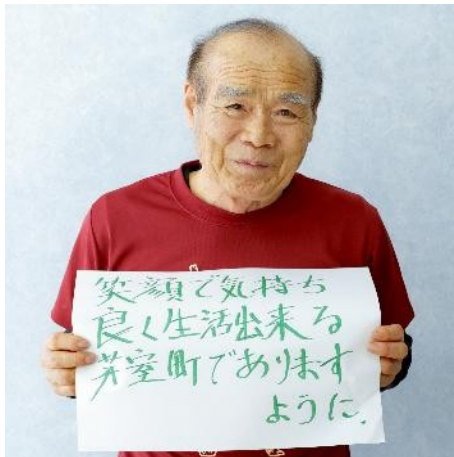 笑顔で気持ち
良く生活出来る
芽室町であります
ように.